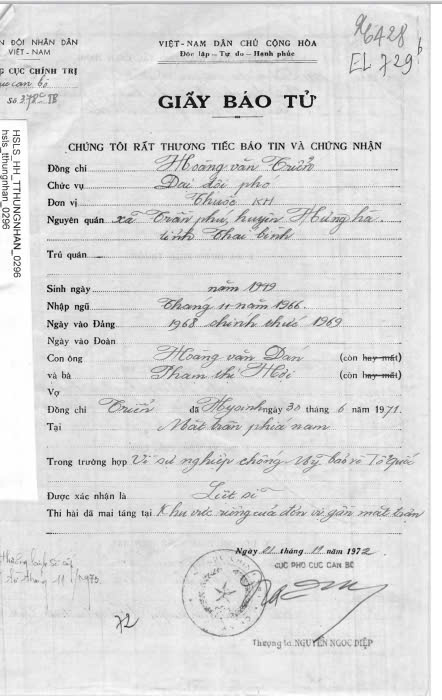 N ĐỘI NHÂN DÂN
VIỆT-NAM
G CỤC CHÍNH TRỊ
cục cán bộ
Số
VIỆT-NAM DÂN CHỦ CỘNG HÒA
Độc lập – Tự do – Hạnh phúc
96428
EL 729 b
GIẤY BÁO TỬ
CHÚNG TÔI RẤT THƯƠNG TIẾC BÁO TIN VÀ CHỨNG NHẬN
HSLS_HH_TTHUNGNHAN_0296
hsls_tthungnhan_0296
Đồng chí Hoàng văn Triển
Chức vụ Đại đội phó
Đơn vị Thuộc KH
Nguyên quán xã Trần phú, huyện Hưng hà
tỉnh Thái bình
Trú quán
Sinh ngày năm 1949
Nhập ngũ Tháng 11 năm 1966
Ngày vào Đảng 1968 chính thức 1969
Ngày vào Đoàn
Con ông Hoàng văn Dán (còn hay mất)
và bà Phạm thị Hôi (còn hay mất)
Vợ
Đồng chí Triển đã Hy sinh ngày 30 tháng 6 năm 1971.
Tại Mặt trận phía nam
Trong trường hợp Vì sự nghiệp chống Mỹ bảo vệ Tổ Quốc
Được xác nhận là Liệt sĩ
Thi hài đã mai táng tại Khu vực riêng của đơn vị gần mặt trận
Ngày 21 tháng 11 năm 1972
CỤC PHÓ CỤC CÁN BỘ
72
Thượng tá NGUYỄN NGỌC DIỆP